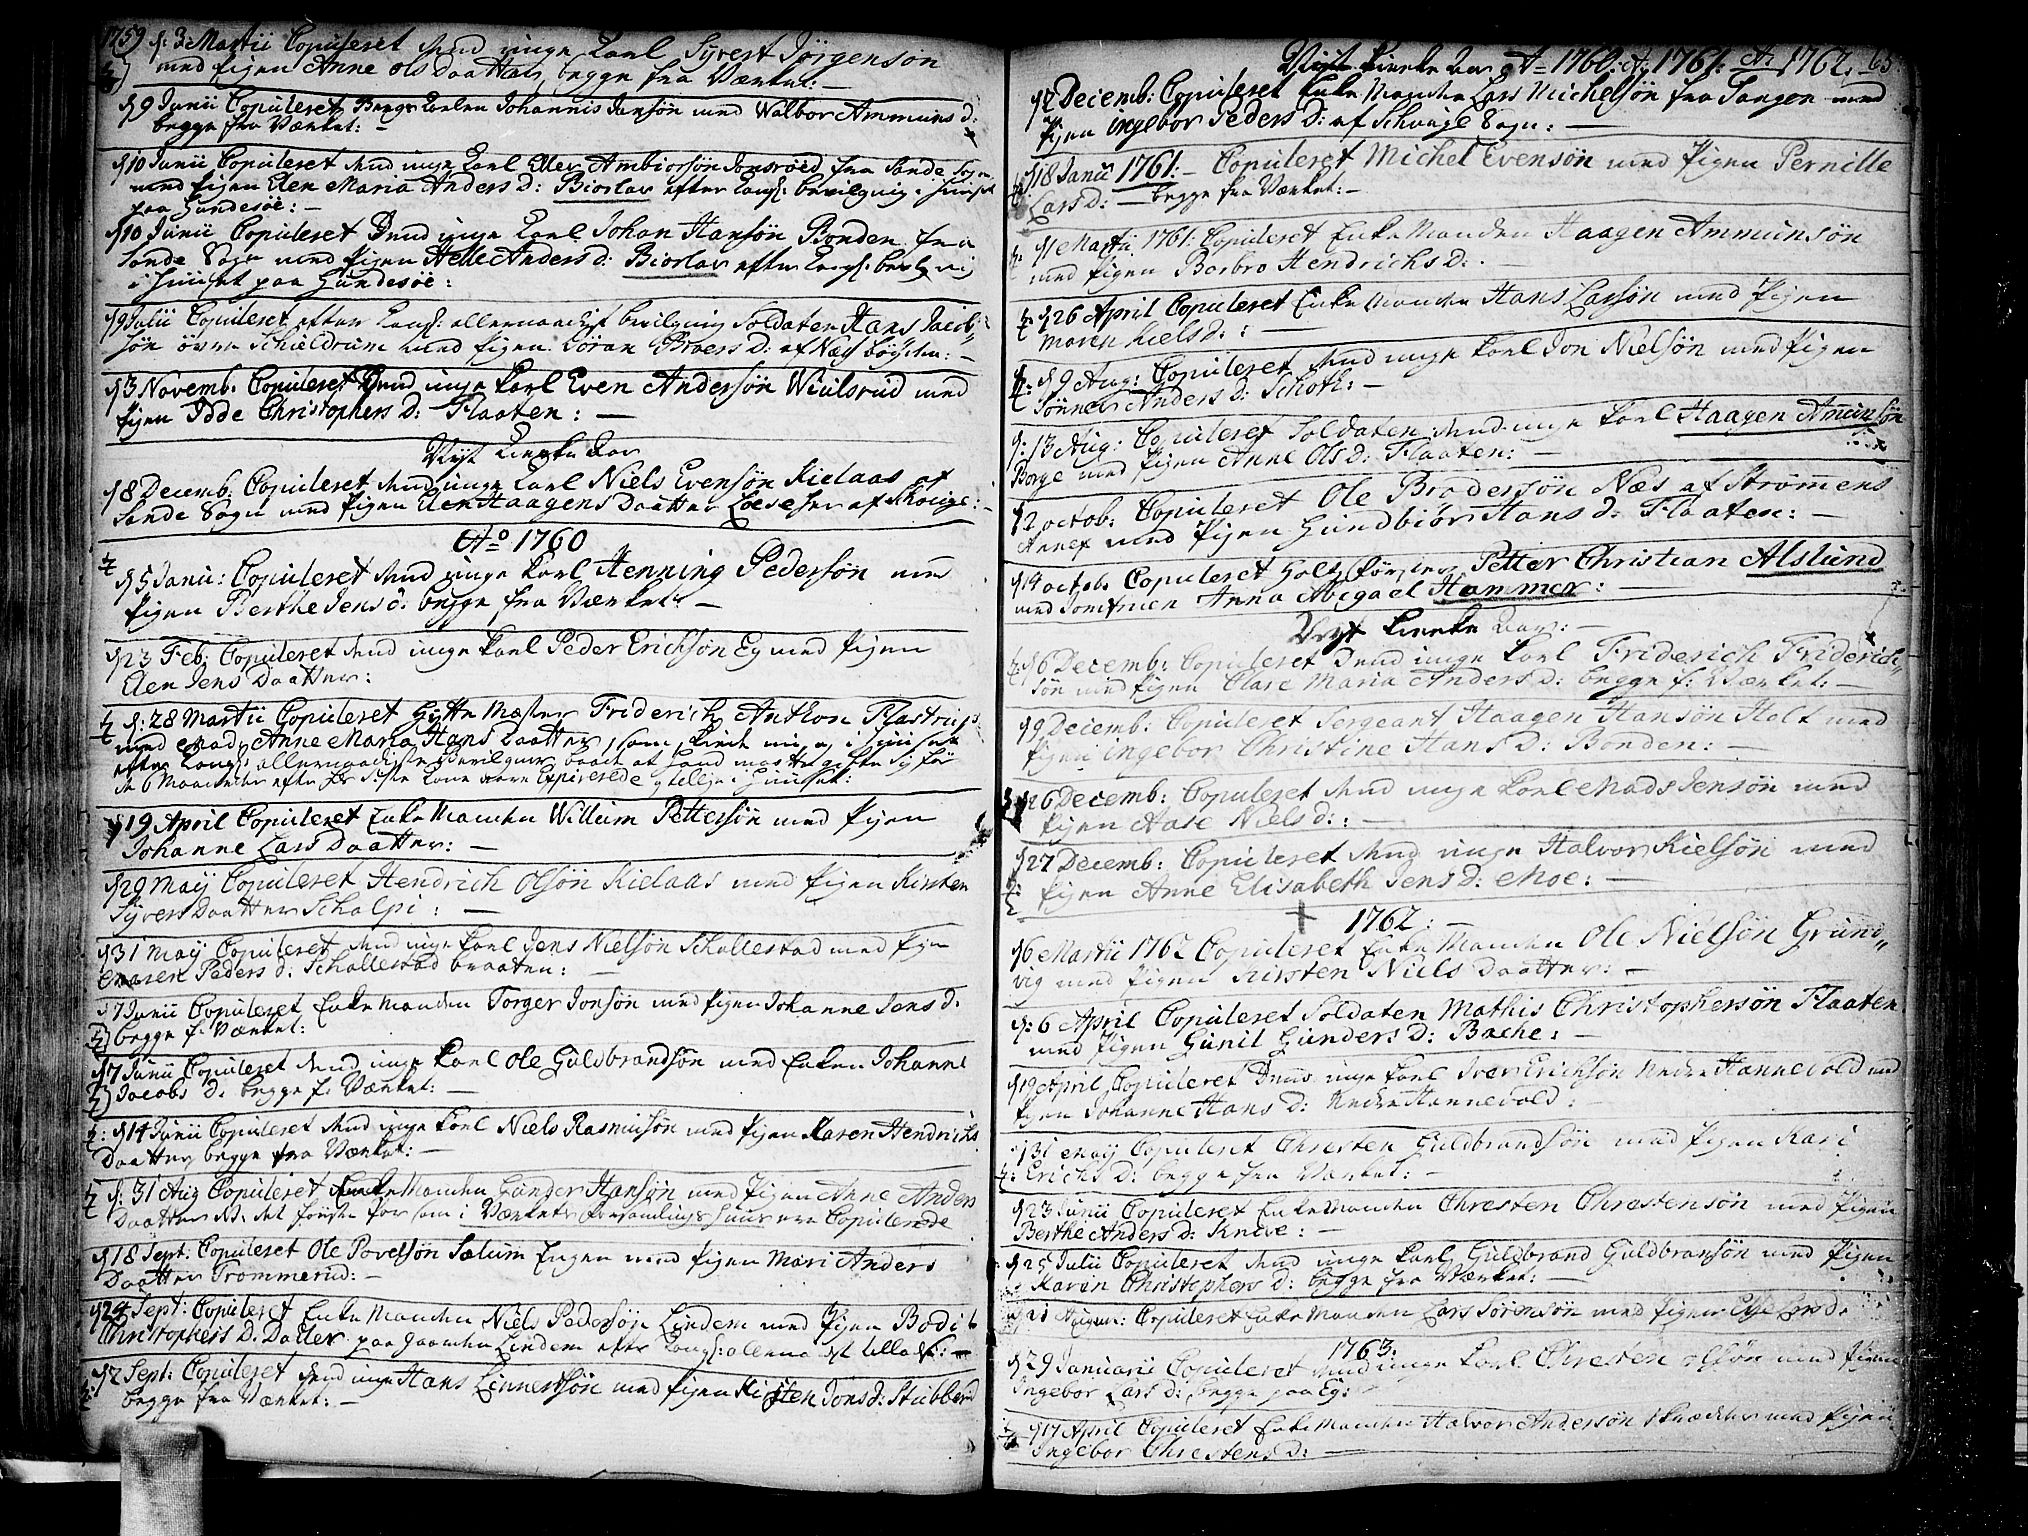 1759 d: 3 Martii Copuleret Ung Karl Syvert Jörgensön
med Pigen Anne Ols Daatter, begge fra Værket: –
d 9 Junii Copuleret Johannis Jansön med Walbor Ammuns d:
begge fra Værket: –
d 10 Junii Copuleret unge Karl Ambiörsön fra Sande Sogn
med Pigen Elen Maria Anders d: Biörlav efter Kongl: bevilgnig i Huuset
paa Gundesöe: –
d 10 Junii Copuleret unge Karl Johan Hansön Bonden fra
Sande Sogn med Pigen Helle Anders d: Biörlav efter Kongl:
i Huuset paa Gundesöe:
d 9 Julii Copuleret efter Kongl: allernaadigst bevilgnig Soldaten Hans Jacob-
sön övre Schieldrum med Pigen Göran Broers d:
d 3 Novemb: Copuleret unge Karl Even Andersön Wiulsrud med
Pigen Idde Christophers d: Flaaten: –
Nyt Kierke Aar
d 8 Decemb: Copuleret unge Karl Niels Evensön Kielaas af
Sande Sogn med Pigen Elen Haagens Daatter af Skouge: –
Ao 1760
d 5 Janu: Copuleret unge Karl Henning Pedersön med
Pigen Berthe Jens d: begge fra Værket: –
d 23 Feb: Copuleret unge Karl Peder Erichsön Eg med Pigen
Elen Jens Daatter:
d: 28 Martii Copuleret Hytte Mæster Friderich Anthon Flastrup
med Mad: Anne Maria Hans Daatter, i Huuset
efter Kongl: allernaadigste bevilgning
i Huuset:
d 19 April Copuleret Enke Manden Willum Pettersön med Pigen
Johanne Lars Daatter: –
d 29 Maij Copuleret Hendrich Olsön Kielaas med Pigen Kirsten
Syvers Daatter Schalpi: –
d 31 Maij Copuleret unge Karl Jens Nielsön Schallestad med Pigen
Maren Peders d: Schallestad braaten: –
d 7 Junii Copuleret Enke Manden Torger Jonsön med Pigen Johanne Jens d.
begge f: Værket:
d 7 Junii Copuleret unge Karl Ole Guldbrandsön med Enken Johanne
Jacobs d. begge f. Værket: –
d 14 Junii Copuleret unge Karl Niels Rasmusön med Pigen Karen Hendrichs
Daatter begge fra Værket: –
d: 31 Aug Copuleret Enke Manden Gunder Hansön med Pigen Anne Anders
Daatter det förste Par som i Værkets forsamlings Huus Copulerede
d 18 Sept: Copuleret Ole Povelsön Sælum Engen med Pigen Mari Anders
Daatter Trommerud: –
d 24 Sept: Copuleret Enke Manden Niels Pedersön Lindem med Pigen Bodil
Christophers D. Datter paa Gaarden Lindem efter Kongl:
d 2 Sept: Copuleret unge Hans Linnertsön med Pigen Kirsten Jons d: Stubberud
begge fra Værket: –
Nyt Kierke Aar Ao 1760: A: 1761: A: 1762. 65
d 2 Decemb: Copuleret Enke Manden Lars Michelsön fra Tangen med
Pigen Ingebor Peders d: af Schouge Sogn: –
d 18 Janu 1761: – Copuleret Michel Evensön med Pigen Pernille
Lars d: – begge fra Værket: –
d 1 Martii 1761: Copuleret Enke Manden Haagen Ammunsön
med Pigen Barbro Hendrichs d: .
d 26 April Copuleret Enke Manden Hans Larsön med Pigen
Maren Niels d: : –
d 9 Aug: Copuleret unge Karl Jon Nielsön med Pigen
Sönnev Anders d: Schoth: –
d: 13 Aug: Copuleret Soldaten unge Karl Haagen Amunsön
Borge med Pigen Anne Ols d: Flaaten: –
d 2 octob: Copuleret Ole Brodersön Næs af Strömens
Annex med Pigen Gundbiör Hans d: Flaaten: –
d 14 octob: Copuleret Petter Christian Alslund
med Jomfruen Anna Abigael Hammer: –
Nyt Kierke Aar: –
d 6 Decemb: Copuleret unge Karl Friderich Friderich-
sön med Pigen Olave Maria Anders d: begge f: Værket: –
d 9 Decemb: Copuleret Sergeant Haagen Hansön Holt med
Pigen Ingebor Christine Hans d: Bonden: –
d 26 Decemb: Copuleret unge Karl Mads Jensön med
Pigen Aase Niels d: : –
d 27 Decemb: Copuleret unge Halvor Kielsön med
Pigen Anne Elisabeth Jens d: Moe: –
1762: –
d 6 Martii 1762 Copuleret Enke Manden Ole Nielsön Grund-
vig med Pigen Kirsten Niels Daatter: –
d: 6 April Copuleret Soldaten Mathis Christophersön Flaaten
med Pigen Gunil Gunders d: Bache: –
d 19 April Copuleret unge Karl Iver Erichsön Nedre Hannevold med
Pigen Johanne Hans d: Nedre Hannevold: –
d 31 Maij Copuleret Chresten Guldbrandsön med Pigen Kari
Erichs d: begge fra Værket: –
d 23 Junii Copuleret Enke Manden Chresten Chrestensön med Pigen
Berthe Anders d: Knive: –
d 25 Julii Copuleret unge Karl Guldbrand Guldbransön med Pigen
Karen Christophers d: begge fra Værket: –
Copuleret Enke Manden Lars Sörensön med Pigen Lars d.
1763:
d 29 Januarii Copuleret unge Karl Chresten Olsön med Pigen
Ingebor Lars d: begge paa Eg:
d 17 April Copuleret Enke Manden Halvor Andersön med Pigen
Ingebor Chrestens d: –